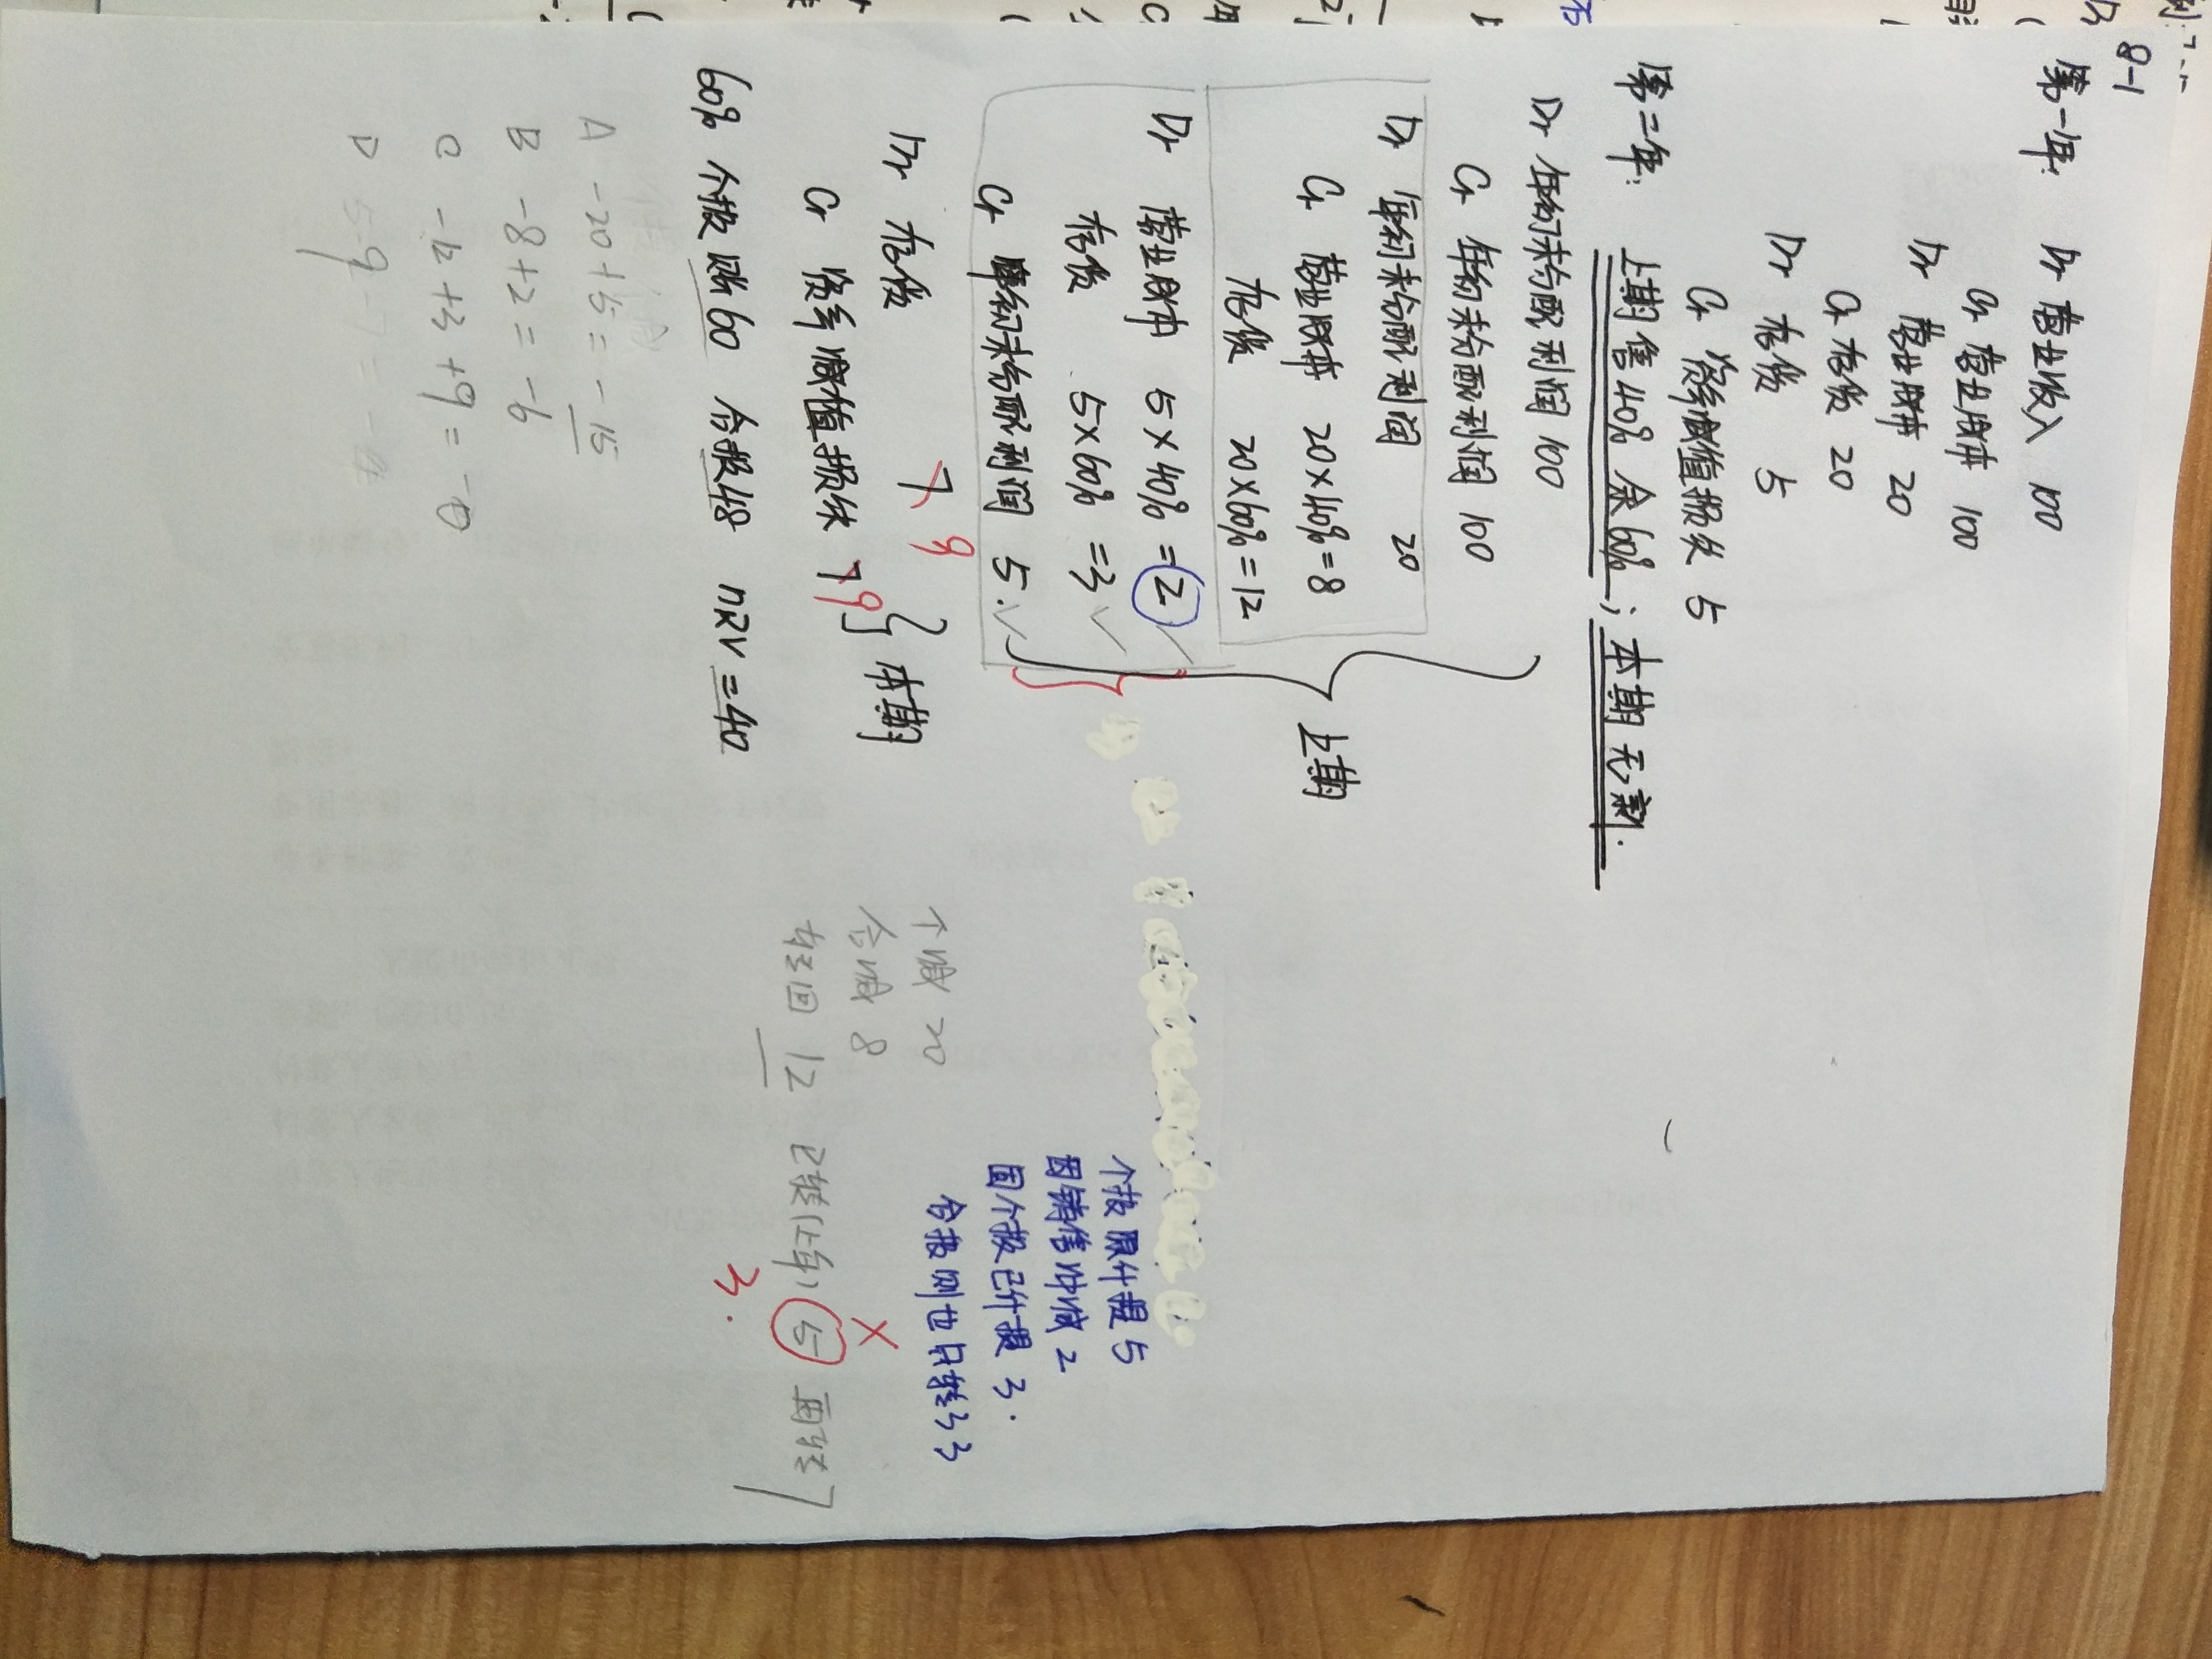 8-1
第一年: Dr 营业收入 100
Cr 营业成本 100
Dr 营业成本 20
Cr 存货 20
Dr 存货 5
Cr 资产减值损失 5
第二年: 上期售40% 余60%; 本期无新.
Dr 年初未分配利润 100
Cr 年初未分配利润 100
Dr 年初未分配利润 20
Cr 营业成本 20×40%=8
存货 20×60%=12
Dr 营业成本 5×40%=2
存货 5×60%=3
Cr 年初未分配利润 5.
上期
Dr 存货 7 9
Cr 资产减值损失 7 9
本期
60% 个报账60 合报48 nRV=40
A -20+5=-15
B -8+2=-6
C -12+3+9=-0
D 5-9
个减 20
合减 8
转回 12 已转(上年) 5 再转7
3.
个报原计提5
因销售冲减2
因个报已计提3.
合报则也只转3 3